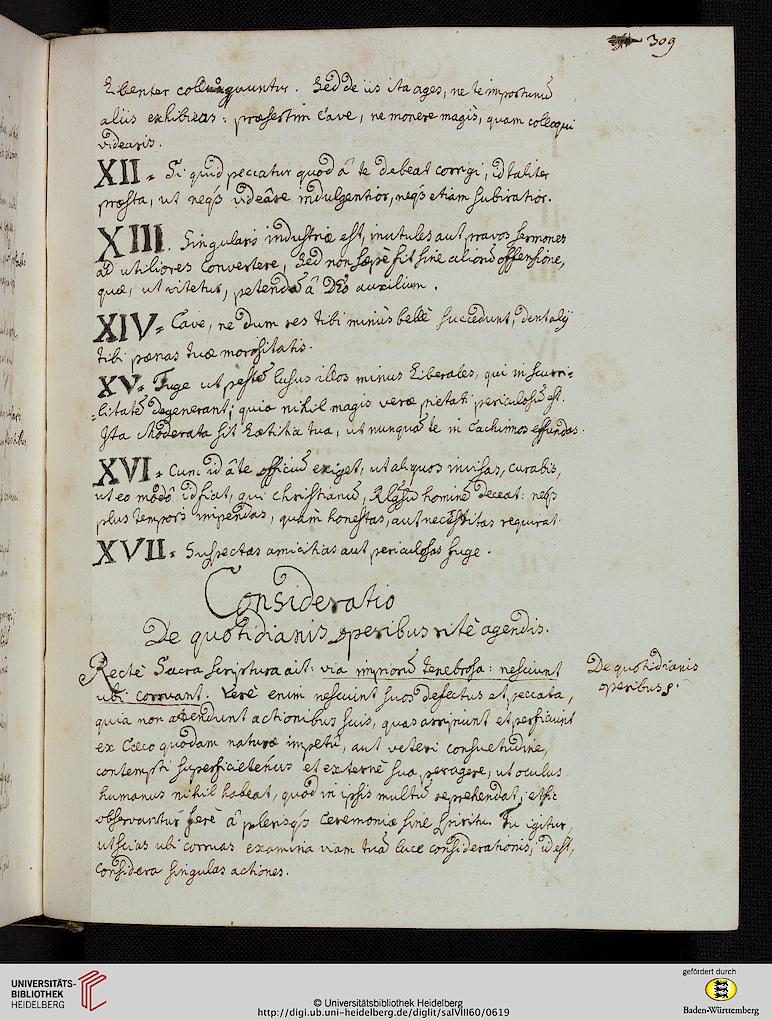 309
Libenter colloquuntur. Sed de iis ita ages, ne te importunū
aliis exhibeas: præsertim cave, ne monere magis, quam colloqui
videaris.
XII. Si quid peccatur quod â te debeat corrigi, id taliter
præsta, ut neqs videâre indulgentior, neqs etiam subiratior.
XIII. Singularis industriæ est, inutiles aut pravos sermones
ad utiliores convertere, sed non sæpè fit sine aliorū offensione,
quæ, ut vitetur, petendū â Deo auxilium.
XIV. Cave, ne dum res tibi minùs bellè succedunt, dent alij
tibi pænas tuæ morositatis.
XV. Fuge ut pestē lusus illos minus Liberales, qui in scurri-
-litatē degenerant; quia nihil magis veræ pietati periculosū est.
Ita Moderata sit Lætitia tua, ut nunquā te in Cachinnos effundas.
XVI. Cum id â te officiū exiget, ut aliquos invisas, curabis,
ut eo modô id fiat, qui Christianū, Rlgsū hominē deceat: neqs
plus temporis impendas, quàm honestas, aut necessitas requirat.
XVII. Suspectas amicitias aut periculosas fuge.
Consideratio
De quotidianis operibus ritè agendis.
Rectè Sacra scriptura ait: via impiorū tenebrosa: nesciunt
ubi corruant. Verè enim nesciunt suos defectus et peccata,
quia non attendunt actionibus suis, quas arripiunt et perficiunt
ex Cæco quodam naturæ impetū, aut veteri consuetudine,
contempti superficietenus et externè sua peragere, ut oculus
humanus nihil habeat, quod in ipsis multū reprehendat; etsi
observantur ferè â plerisqs Ceremoniæ sine spiritu. Tu igitur,
ut scias ubi corruas examina viam tuā luce considerationis, id est,
considera singulas actiones.
De quotidianis
operibus
UNIVERSITÄTS-
BIBLIOTHEK
HEIDELBERG
© Universitätsbibliothek Heidelberg
http://digi.ub.uni-heidelberg.de/diglit/salVIII60/0619
gefördert durch
Baden-Württemberg